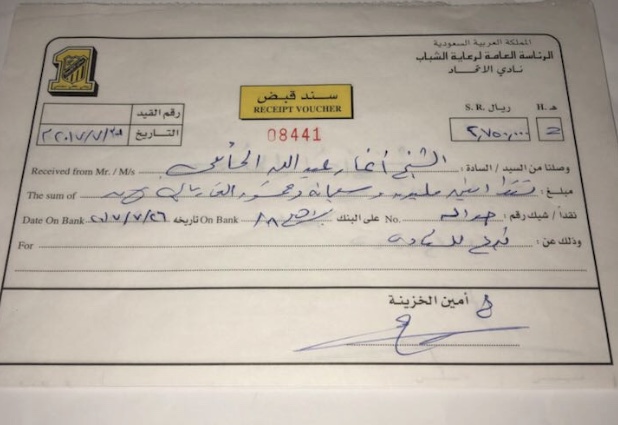 المملكة العربية السعودية
الرئاسة العامة لرعاية الشباب
نادي الاتحاد
سند قبض
RECEIPT VOUCHER
08441
رقم القيد
التاريخ ٢٠١٧/٧/٢٨
ريال S. R.
٢,٧٥٠,٠٠٠
هـ H.
Received from Mr. / M/s الشيخ عبد الله وصلنا من السيد / السادة :
The sum of فقط مليون وسبعمائة وخمسون ريال مبلغ :
Date On Bank ٢٠١٧/٧/٢٦ تاريخه On Bank على البنك No. حواله نقداً / شيك رقم :
For وذلك عن :
أمين الخزينة